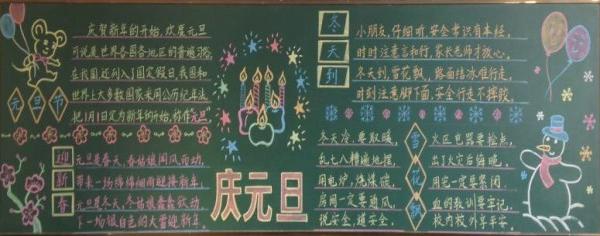 庆贺新年的开始,欢度元旦
可说是世界各国各地区的普遍习俗。
在我国还列入了国定假日,我国和
世界上大多数国家采用公历纪年法,
把1月1日定为新年的开始,称作元旦
元旦节
迎新春
元旦是春天,春姑娘闻风而动,
带来一场绵绵细雨迎接新年。
元旦是冬天,冬姑娘蠢蠢欲动,
下一场银白色的大雪迎新年。
庆元旦
冬天到
小朋友,仔细听,安全常识自本经。
时时注意言和行,家长老师才放心。
冬天到,雪花飘,路面结冰难行走。
时刻注意脚下面,安全行走不摔跤。
冬天冷,要取暖,
乱七八糟遍地摆,
用电炉,烧煤碳,
房间一定要通风,
说安全,道安全,
雪花飘
火区电器要检点,
出了火灾后悔晚。
用完一定要紧闭。
血的教训要牢记。
校内校外享平安。